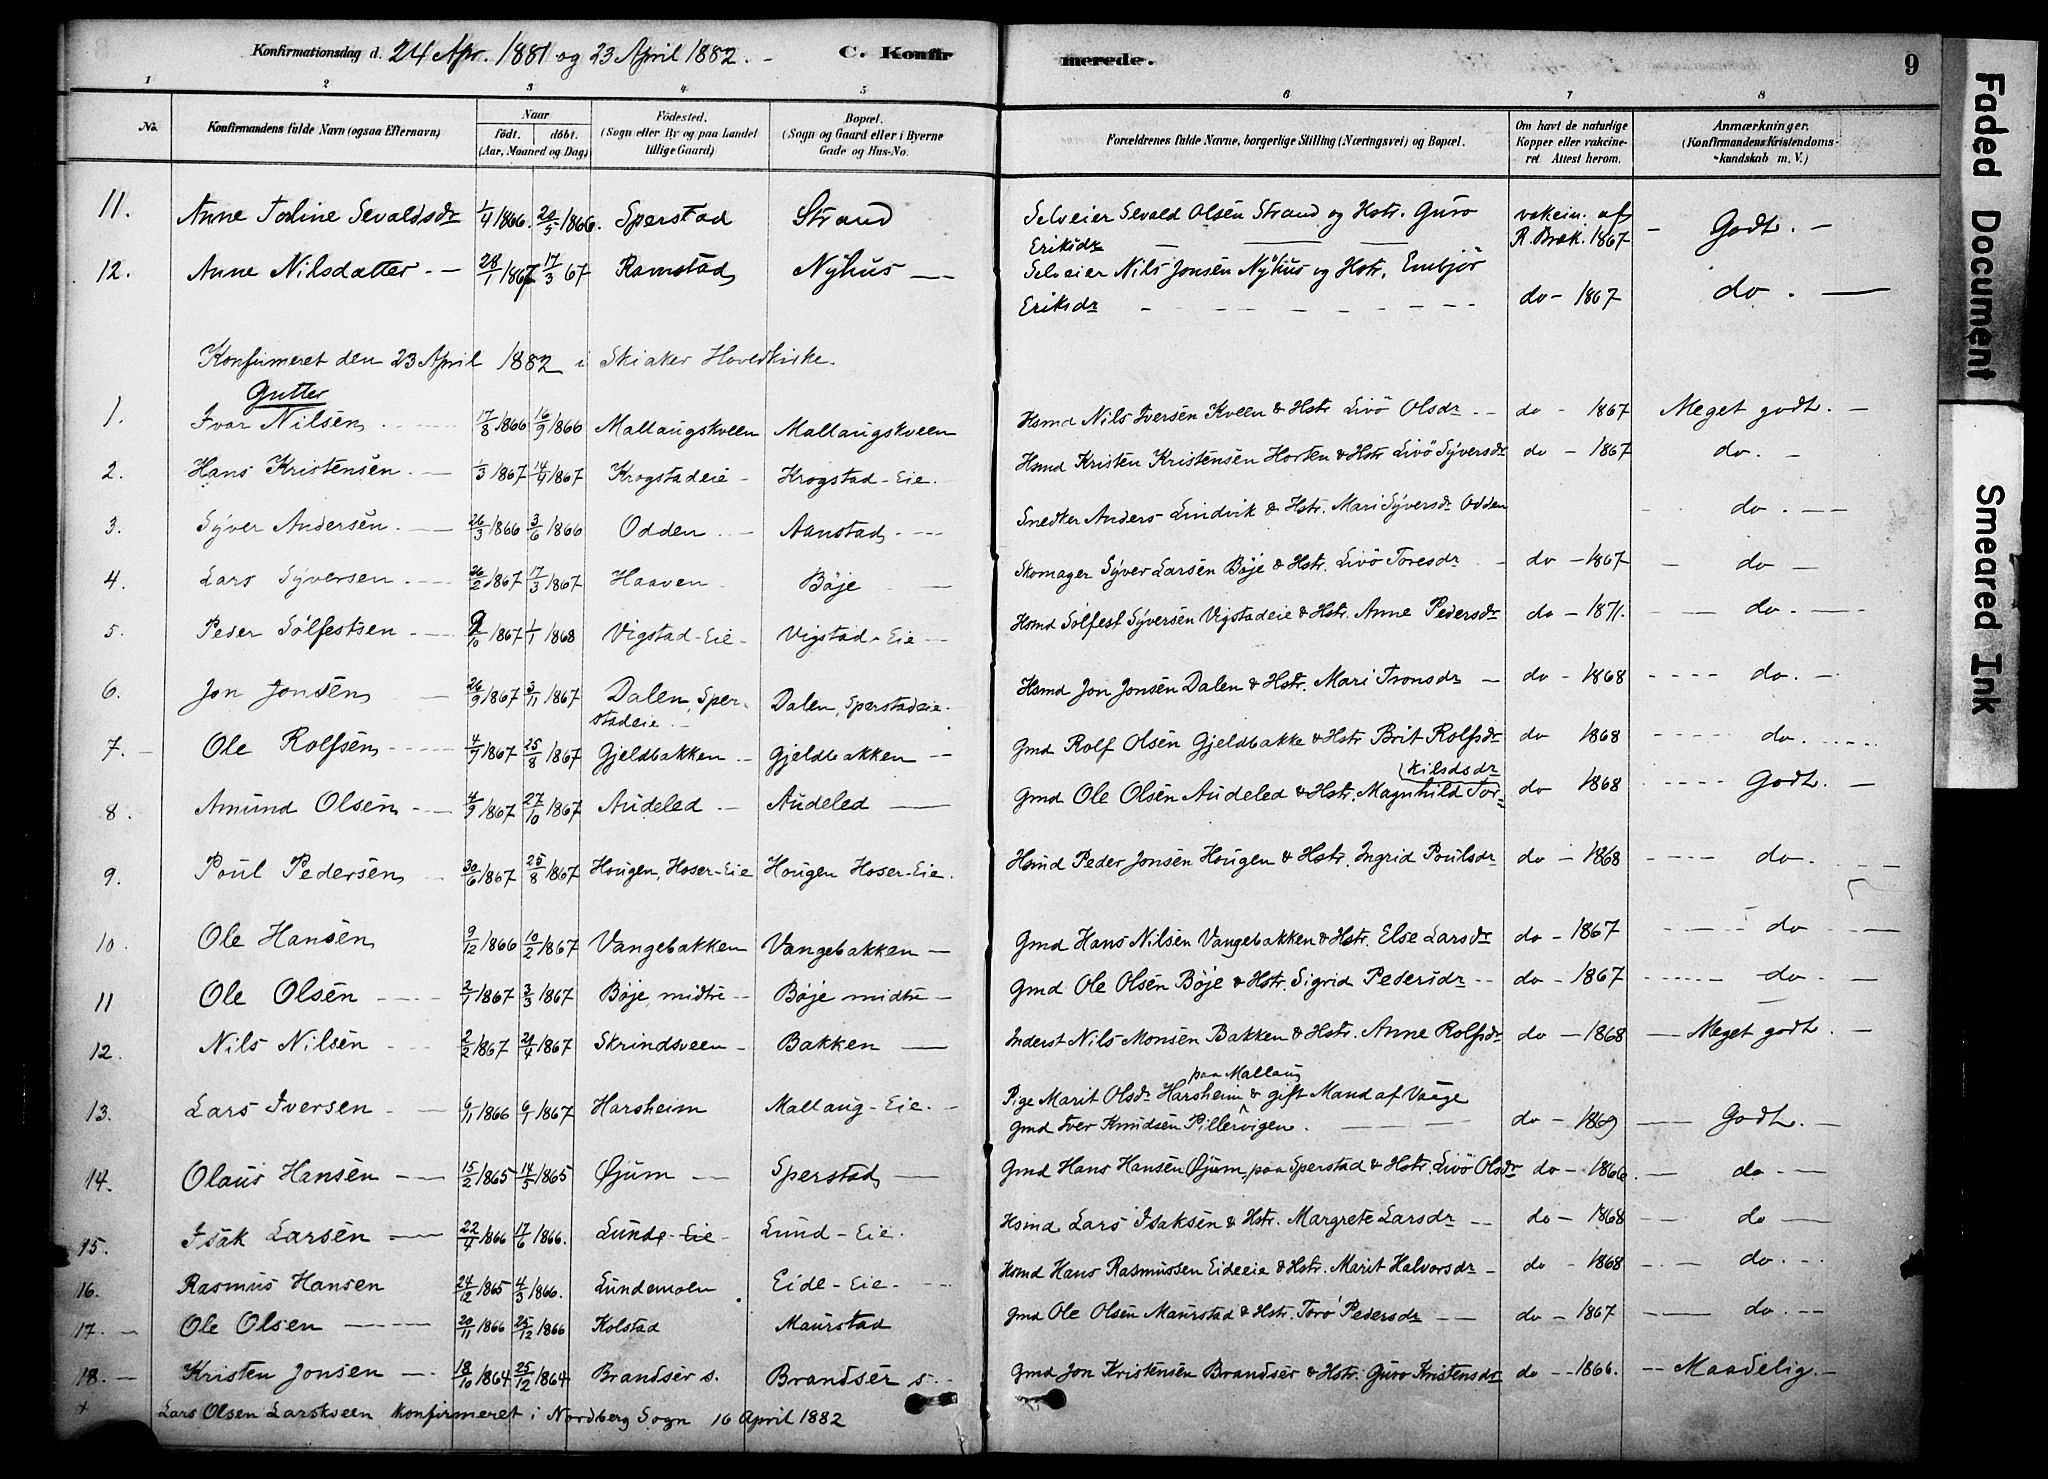 Konfirmationsdag d. 24 Apr. 1881 og 23 April 1882. - C. Konfirmerede. 9
1 2 3 4 5 6 7 8
No. Konfirmandens fulde Navn (ogsaa Efternavn) Naar født. døbt. (Aar, Maaned og Dag) Fødested. (Sogn eller By og paa Landet tillige Gaard) Bopæl. (Sogn og Gaard eller i Byerne Gade og Hus-No. Forældrenes fulde Navne, borgerlige Stilling (Næringsvei) og Bopæl. Om havt de naturlige Kopper eller vakcineret. Attest herom. Anmærkninger. (Konfirmandens Kristendomskundskab m. V.)
11. Anne Sevaldsdr 1/4 1866. 20/5 1866. Sperstad Strand Selveier Sevald Olsen Strand og Hstr. Guro vakcin. af
Eriksdr — — — R. Bræk. 1867 - Godt. -
12. Anne Nilsdatter - 28/1 1867 17/3 67 Ramstad Nyhus — Selveier Nils Jonsen Nyhus og Hstr. Embjør
Eriksdr - - - do - 1867 do. —
Konfirmeret den 23 April 1882 i Skiaker Hovedkirke.
Gutter
1. Ivar Nilsen 17/8 1866 16/9 1866 Mallaugskveen Mallaugskveen Hsmd Nils Iversen Kveen & Hstr Livø Olsdr - - do - 1867 Meget godt. -
2. Hans Kristensen. - 1/3 1867 14/4 1867 Krogstadeie - Krogstad-Eie. Hsmd Kristen Kristensen Horten & Hstr Livø Syversdr do - 1867 do. -
3. Syver Andersen. - 26/3 1866 3/6 1866 Odden - Aanstad - Snedker Anders Lindvik & Hstr. Mari Syversdr Odden - - do. - -
4. Lars Syversen. - 26/2 1867 17/3 1867 Haaven - Bøje - Skomager Syver Larsen Bøje & Hstr. Livø Toresdr - do - 1867 - do -
5. Peder Sølfestsen - 9/10 1867 1/1 1868 Vigstad-Eie - Vigstad-Eie - Hsmd Sølfest Syversen Vigstadeie & Hstr. Anne Pedersdr do - 1871. - do. -
6. Jon Jonsen - 26/9 1867 3/11 1867 Dalen, Sperstadeie. - Dalen, Sperstadeie. Hsmd Jon Jonsen Dalen & Hstr. Mari Tronsdr - do - 1868 - do. -
7. - Ole Rolfsen - 4/9 1867 25/8 1867 Gjeldbakken - Gjeldbakken - Gmd Rolf Olsen Gjeldbakke & Hstr Brit Rolfsdr do 1868 - do. -
(kilsdsdr
8. Amund Olsen - 4/9 1867 27/10 1867 Audeled - Audeled — Gmd Ole Olsen Audeled & Hstr. Magnhild Tor- do 1868 - Godt. -
9. Poul Pedersen - 30/6 1867 25/8 1867 Hougen, Hoser-Eie Hougen Hoser-Eie. Hsmd Peder Jonsen Hougen & Hstr. Ingrid Poulsdr do - 1868 - do. -
10. Ole Hansen 9/12 1866 10/2 1867 Vangebakken Vangebakken - Gmd Hans Nilsen Vangebakken & Hstr. Else Larsdr do - 1867 - do -
11 Ole Olsen - 2/1 1867 3/3 1867 Bøje, midtre - Bøje midtre - Gmd Ole Olsen Bøje & Hstr. Sigrid Pedersdr - do - 1867 - do. -
12. Nils Nilsen - 2/2 1867 21/4 1867 Skrindsveen - Bakken — Inderst Nils Monsen Bakken & Hstr. Anne Rolfsdr do - 1868 - Meget godt. -
paa Mallaug
13. Lars Iversen - 6/11 1866 6/1 1867 Harsheim Mallaug-Eie. - Pige Marit Olsdr Harsheim & gift Mand af Vaage
Gmd Iver Knudsen Pillervigen. - do - 1869 - Godt. -
14. Olaus Hansen - 15/2 1865 14/5 1865 Øjum - Sperstad - Gmd Hans Hansen Øjum, paa Sperstad & Hstr. Livø Olsdr do - 1866. - do -
15. Isak Larsen - 22/4 1866 17/6 1866. Lunde-Eie Lund-Eie. Hsmd Lars Isaksen & Hstr. Margrete Larsdr - do - 1868 - do -
16. Rasmus Hansen 24/12 1865 4/3 1866. Lundemoen Eide-Eie. - Hsmd Hans Rasmussen Eideeie & Hstr. Marit Halvorsdr - do - 1868 - do. -
17. - Ole Olsen - 20/11 1866 25/12 1866 Kolstad Maurstad Gmd Ole Olsen Maurstad & Hstr. Torø Pedersdr - do - 1867 - do. -
18. - Kristen Jonsen - 18/10 1864 25/12 1864 Brandser s. Brandser s. - Gmd Jon Kristensen Brandser & Hstr. Guro Kristensdr do - 1866. - Maadelig. -
x Lars Olsen konfirmeret i Nordberg Sogn 16 April 1882
Faded Document
Smeared Ink